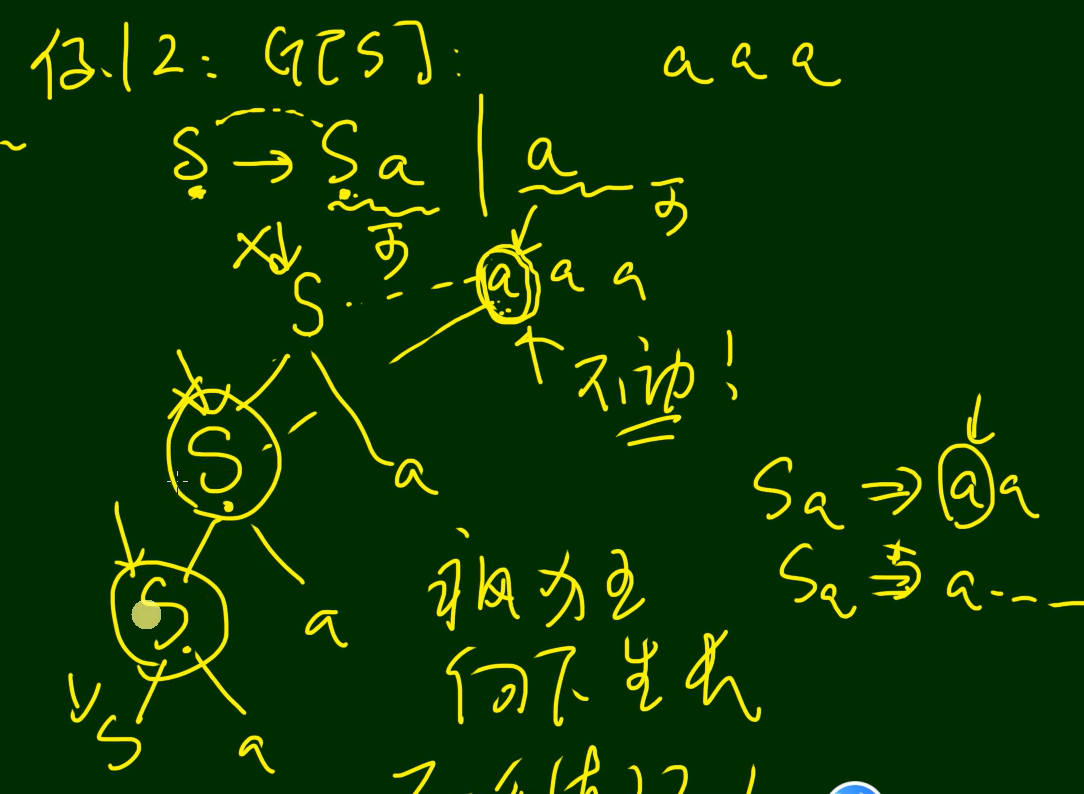 例12: G[S]:
a a a
S → Sa | a
可
可
S
a a a
不动!
S
a
Sa ⇒ aa
Sa ⇒+ a---
S
a
S a
向下生长